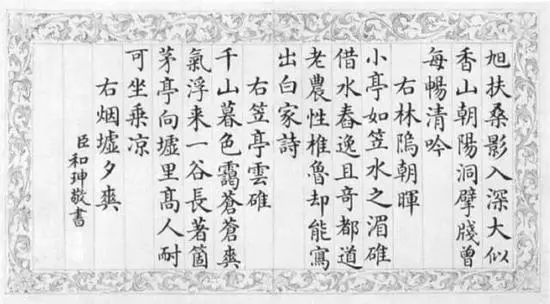 旭扶桑影入深大似
香山朝陽洞擘牋曾
每暢清吟
右林隖朝暉
小亭如笠水之湄碓
借水舂逸且奇都道
老農性椎魯却能寫
出白家詩
右笠亭雲碓
千山暮色靄蒼蒼爽
氣浮來一谷長著箇
茅亭向墟里髙人耐
可坐乘凉
右烟墟夕爽
臣和珅敬書